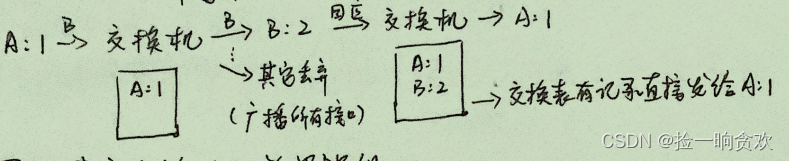 A:1 B→ 交换机 B→ B:2 回应→ 交换机 → A:1
A:1
其它丢弃
(广播所有接口)
A:1
B:2
→交换表有记录直接发给A:1
CSDN @捡一晌贪欢